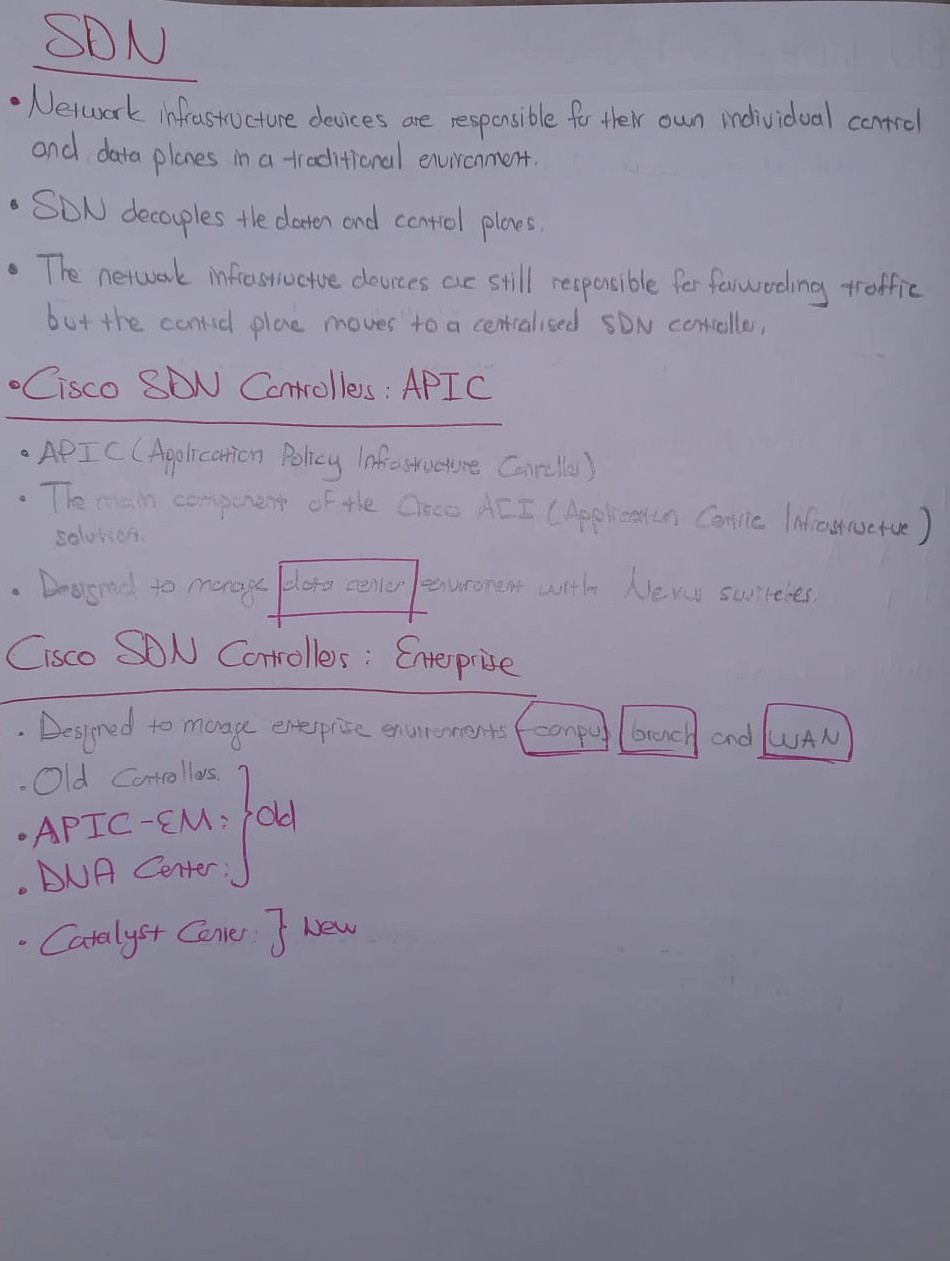 SDN
• Network infrastructure devices are responsible for their own individual control
and data planes in a traditional environment.
• SDN decouples the data and control planes.
• The network infrastructure devices are still responsible for forwarding traffic
but the control plane moves to a centralised SDN controller.
• Cisco SDN Controllers: APIC
• APIC (Application Policy Infrastructure Conroller)
• The main component of the Cisco ACI (Application Centric Infrastructure)
solution.
• Designed to manage data center environment with Nexus switches.
Cisco SDN Controllers: Enterprise
• Designed to manage enterprise environments - campus branch and WAN
• Old Controllers.
• APIC-EM: } Old
• DNA Center:
• Catalyst Center: } New